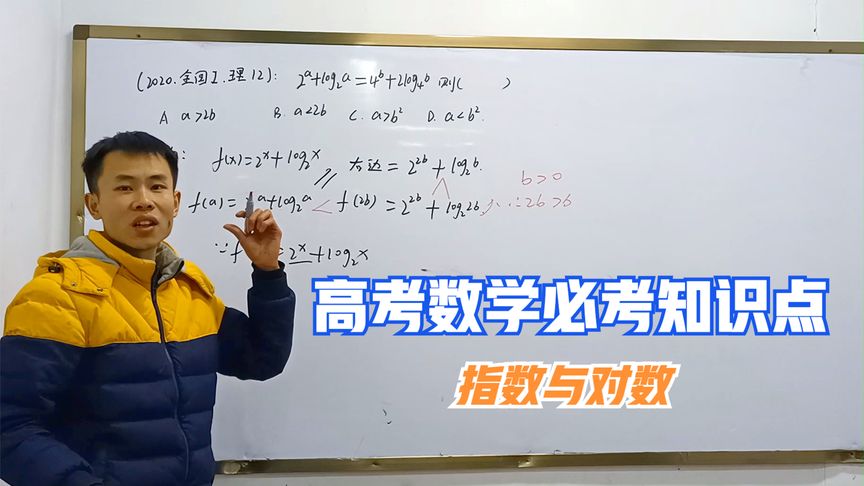 (2020.全国I.理12): 2^a+log₂a=4^b+2log₄b 则( )
A a>2b B. a<2b C. a>b² D. a<b².
: f(x)=2^x+log₂x 右边=2^{2b}+log₂b.
f(a)=2^a+log₂a < f(2b)=2^{2b}+log₂2b, ∵2b>b
b>0
∵f =2^x+log₂x
高考数学必考知识点
指数与对数